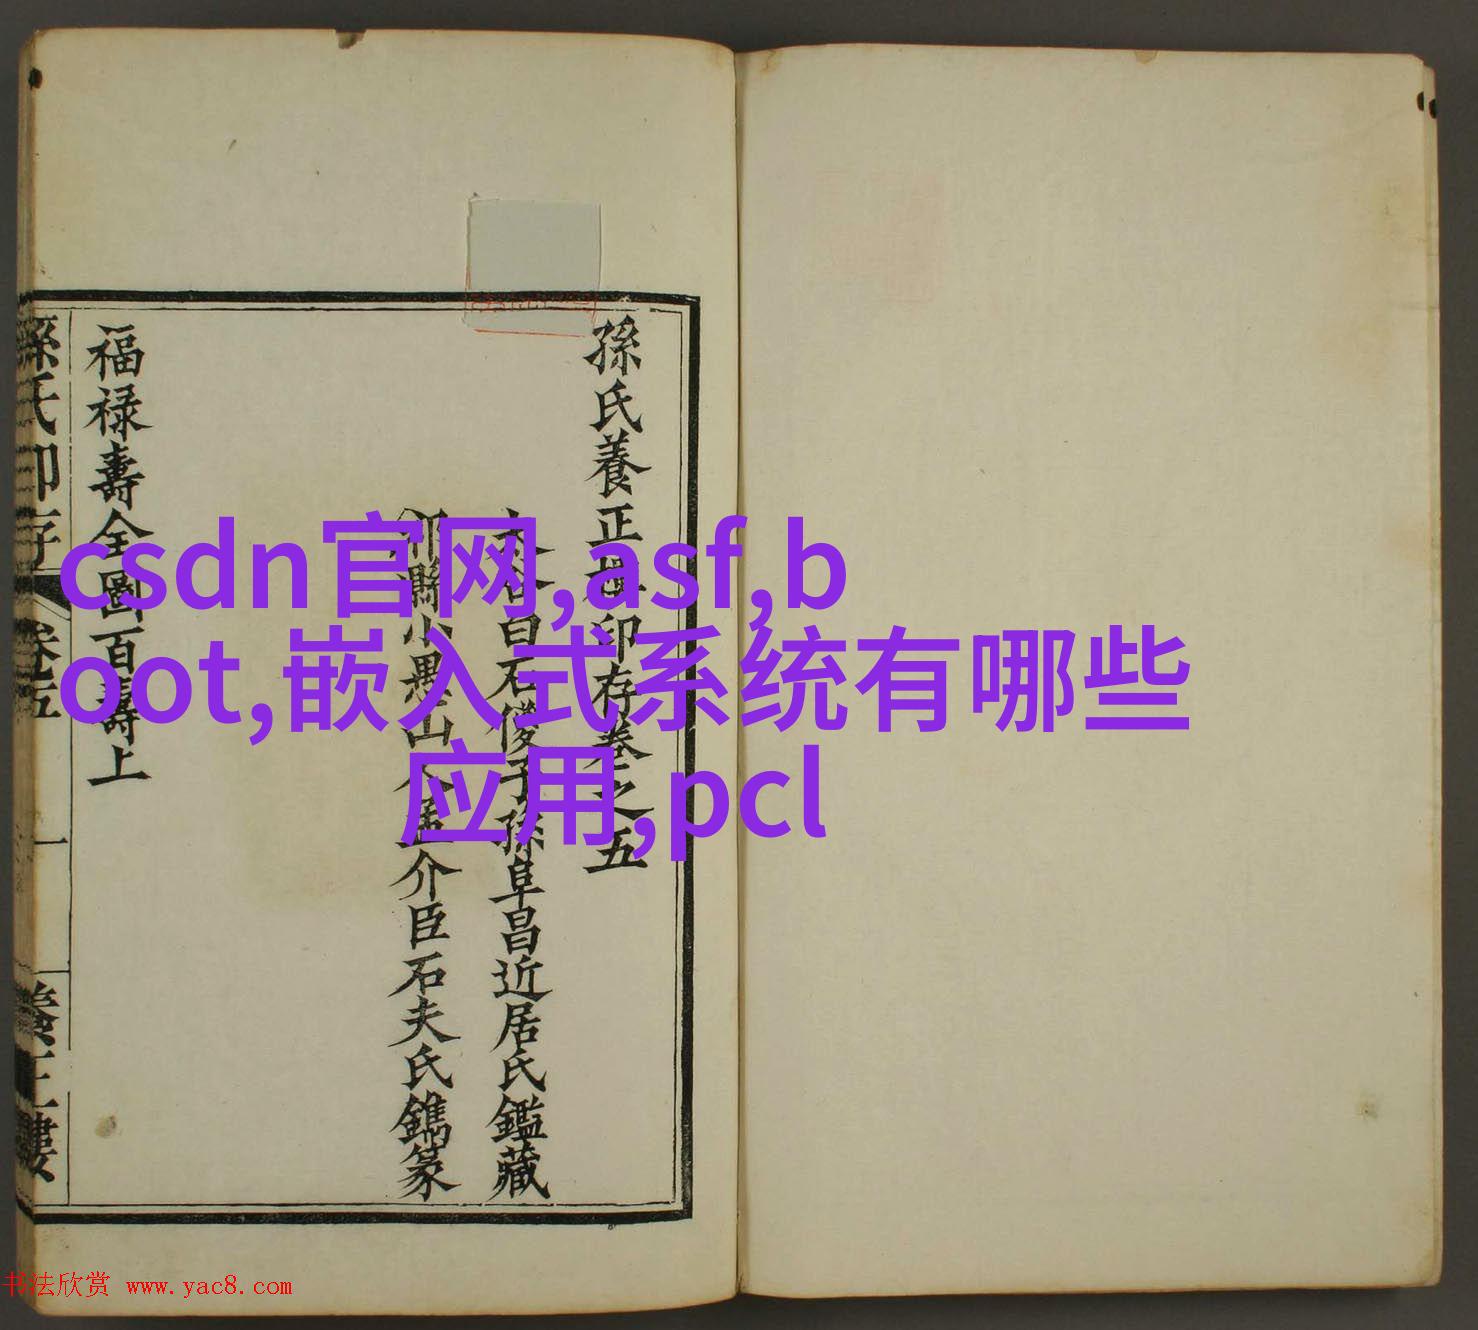 孫氏養正樓印存卷之五
石子孫阜昌近居氏鑑藏
山人孟介臣石夫氏鐫篆
福禄壽全圖百壽上
孫氏印存
卷五
一
養正樓
csdn官网,asf,b
oot,嵌入式系统有哪些
应用,pcl
书法欣赏 www.yac8.com